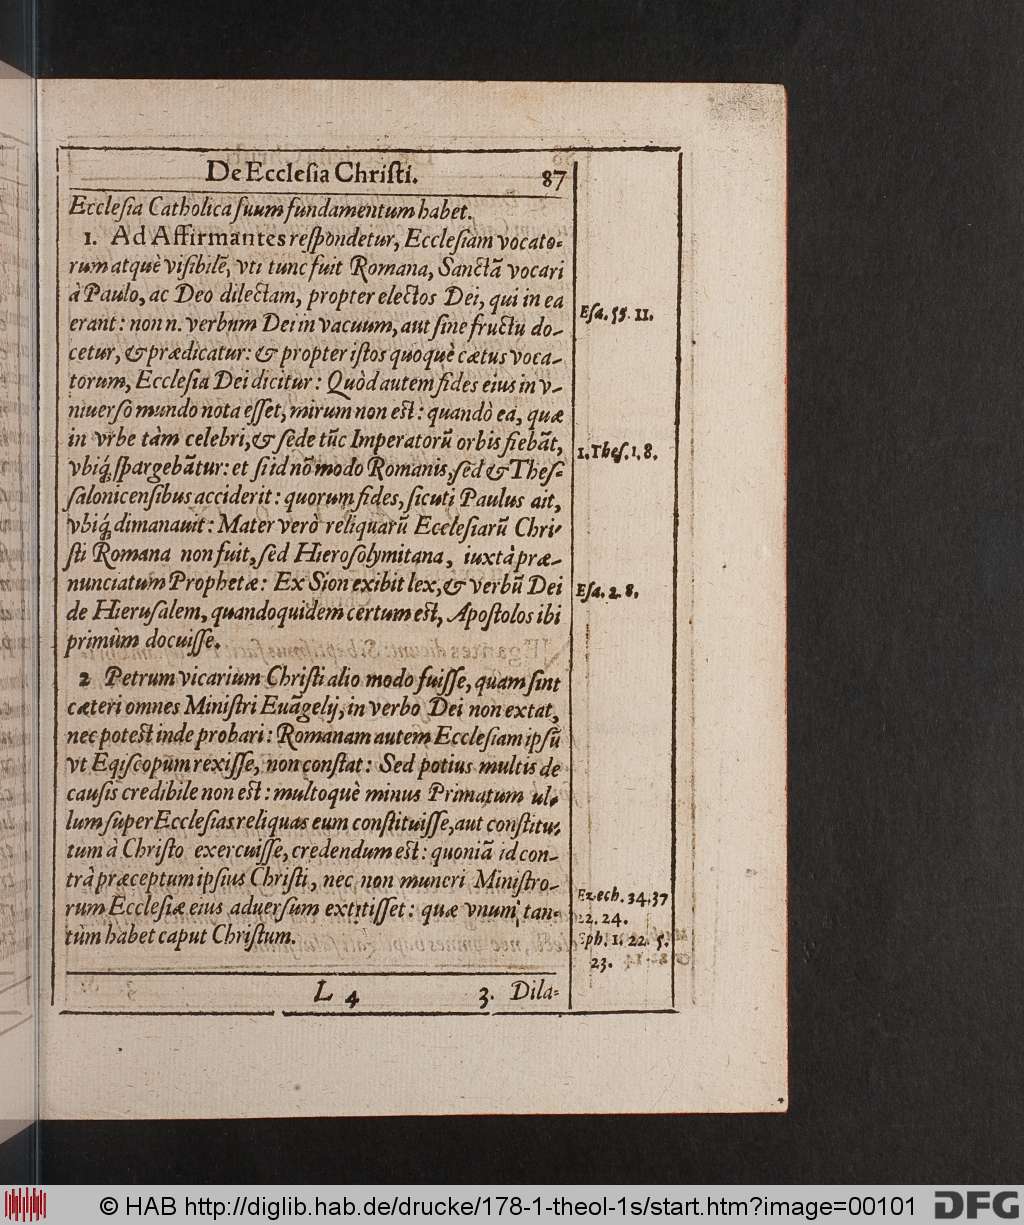 De Ecclesia Christi. 87
Ecclesia Catholica suum fundamentum habet.
1. Ad Affirmantes respondetur, Ecclesiam vocato-
rum atquè visibilẽ, vti tunc fuit Romana, Sanctã vocari
à Paulo, ac Deo dilectam, propter electos Dei, qui in ea
erant: non n. verbum Dei in vacuum, aut sine fructu do-
cetur, & prædicatur: & propter istos quoquè cætus voca-
torum, Ecclesia Dei dicitur: Quòd autem fides eius in v-
niuerso mundo nota esset, mirum non est: quandò ea, quæ
in vrbe tàm celebri, & sede tũc Imperatorũ orbis fiebãt,
vbiq́; spargebãtur: et si id nõ modo Romanis, sed & Thes-
salonicensibus acciderit: quorum fides, sicuti Paulus ait,
vbiq́; dimanauit: Mater verò reliquarũ Ecclesiarũ Chri-
sti Romana non fuit, sèd Hierosolymitana, iuxtà præ-
nunciatum Prophetæ: Ex Sion exibit lex, & verbũ Dei
de Hierusalem, quandoquidem certum est, Apostolos ibi
primùm docuisse.
2 Petrum vicarium Christi alio modo fuisse, quam sint
cæteri omnes Ministri Euãgelij, in verbo Dei non extat,
nec potest inde probari: Romanam autem Ecclesiam ipsũ
vt Eqiscopum rexisse, non constat: Sed potius multis de
causis credibile non est: multoquè minus Primatum ul-
lum super Ecclesias reliquas eum constituisse, aut constitu-
tum à Christo exercuisse, credendum est: quoniã id con-
trà præceptum ipsius Christi, nec non muneri Ministro-
rum Ecclesiæ eius aduersum extitisset: quæ vnum tan-
tùm habet caput Christum.
L 4 3. Dila-
Esa. 55. 11.
1. Thes. 1. 8.
Esa. 2. 8.
Ezech. 34. 37
22. 24.
Eph. 1. 22. 5.
23.
© HAB http://diglib.hab.de/drucke/178-1-theol-1s/start.htm?image=00101 DFG